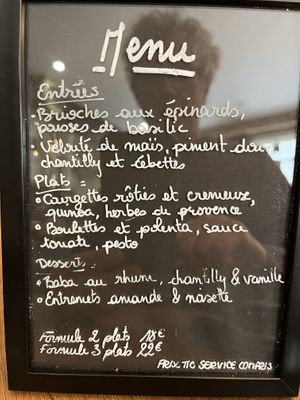 Menu
Entrées
- Brioches aux épinards,
de basilic
- Velouté de maïs, piment doux
chantilly et cébettes
Plats :
• Courgettes rôties et cremeuze,
quinoa, herbes de provence
• Boulettes et polenta, sauce
tomate, pesto
Desserts
• Baba au rhume, chantilly & vanille
• Entremets amande & noisette
Formule 2 plats 18€
Formule 3 plats 22€
PRIX TTC SERVICE COMPRIS